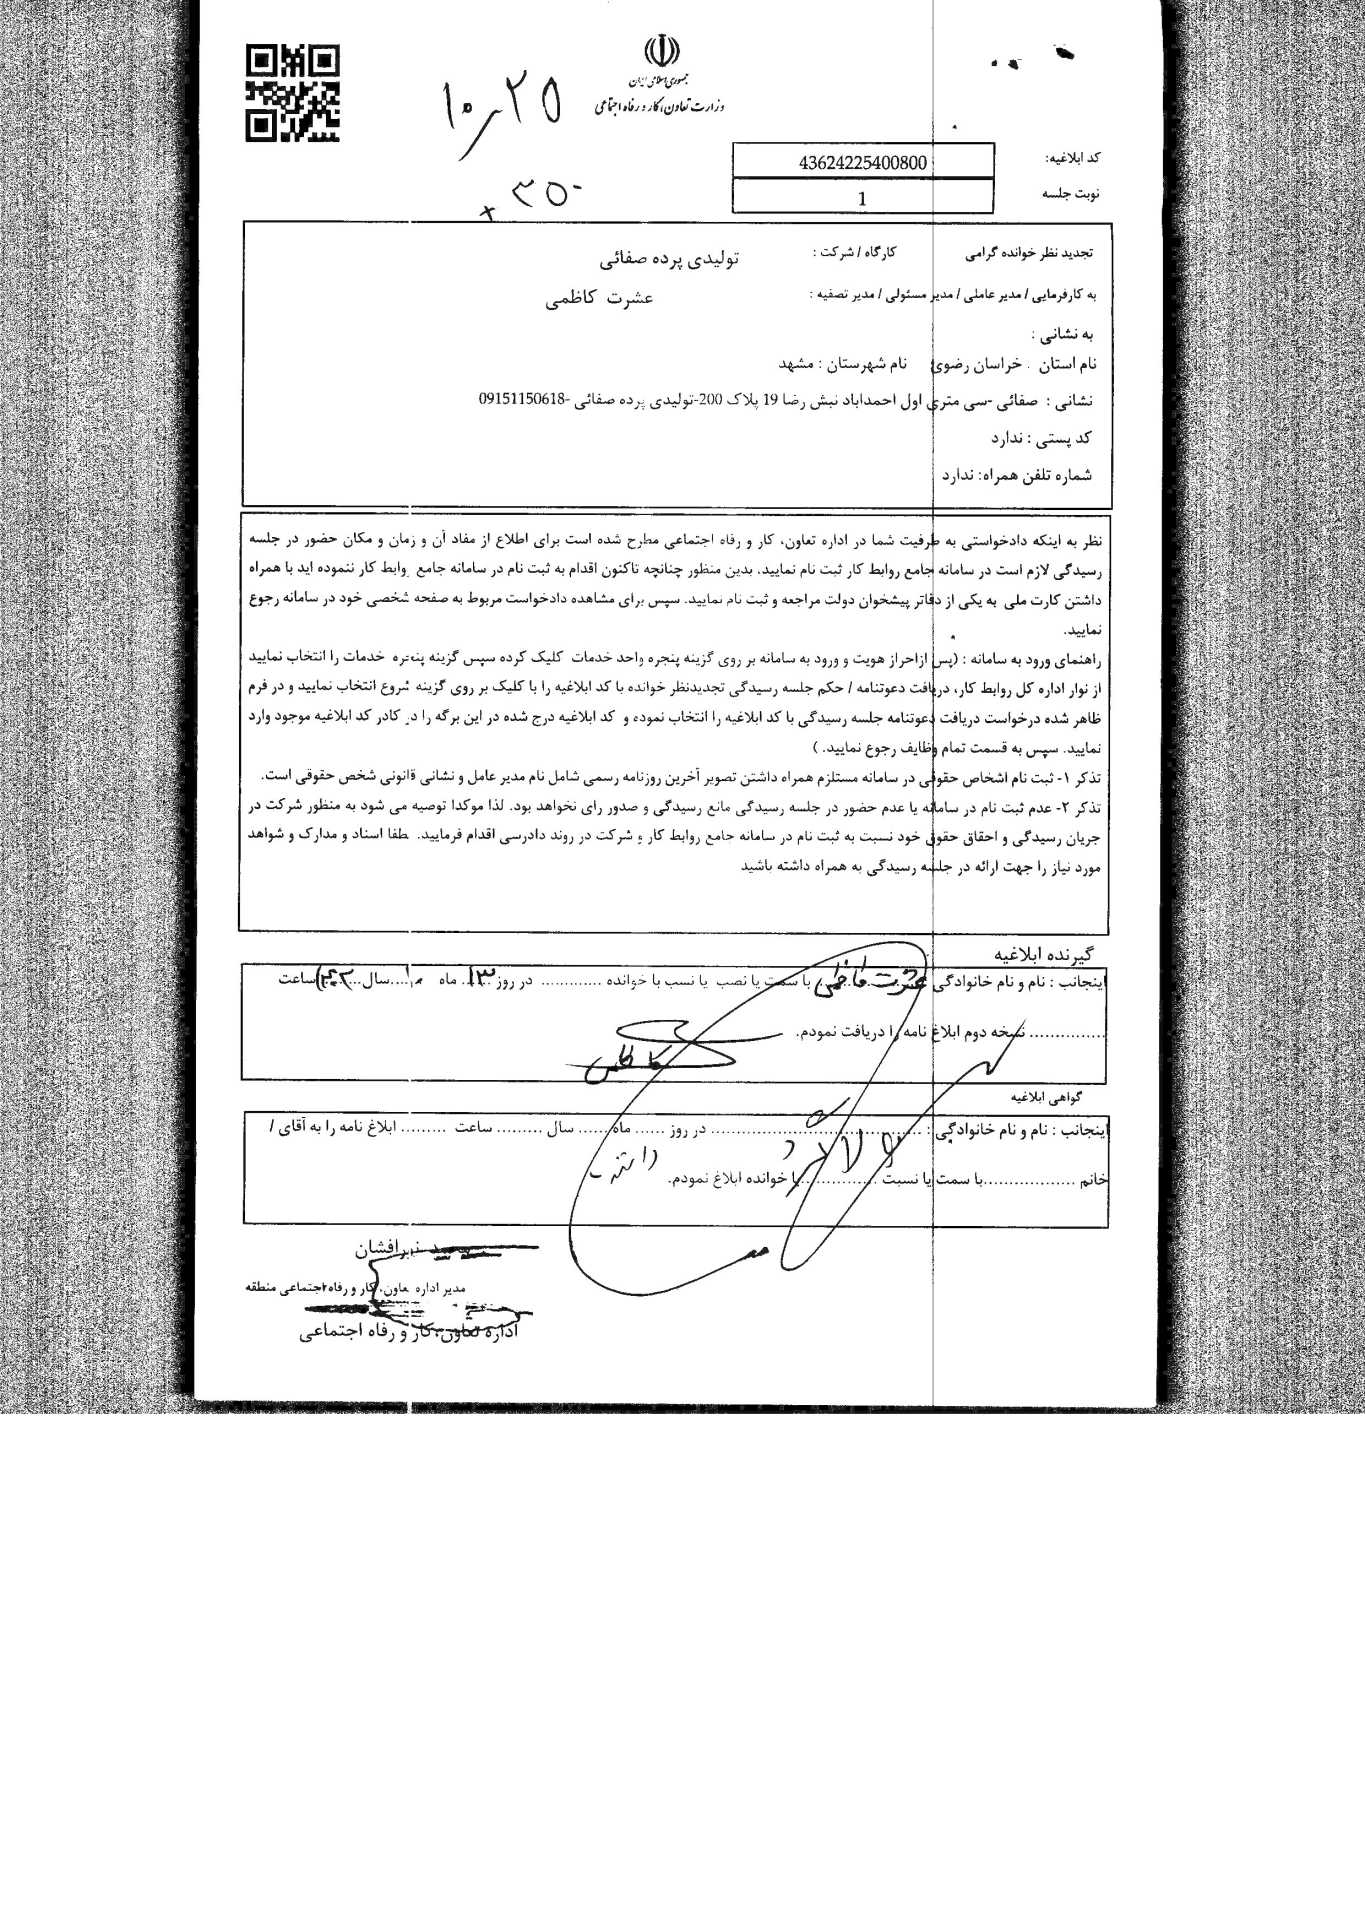 جمهوری اسلامی ایران
وزارت تعاون، کار و رفاه اجتماعی
۱۰ ۲۵
۳۵۰
کد ابلاغیه: 43624225400800
نوبت جلسه 1
تجدید نظر خوانده گرامی کارگاه / شرکت : تولیدی پرده صفائی
به کارفرمایی / مدیر عاملی / مدیر مسئولی / مدیر تصفیه : عشرت کاظمی
به نشانی :
نام استان . خراسان رضوی نام شهرستان : مشهد
نشانی : صفائی -سی متری اول احمداباد نبش رضا 19 پلاک 200-تولیدی پرده صفائی -09151150618
کد پستی : ندارد
شماره تلفن همراه: ندارد
نظر به اینکه دادخواستی به طرفیت شما در اداره تعاون، کار و رفاه اجتماعی مطرح شده است برای اطلاع از مفاد آن و زمان و مکان حضور در جلسه
رسیدگی لازم است در سامانه جامع روابط کار ثبت نام نمایید، بدین منظور چنانچه تاکنون اقدام به ثبت نام در سامانه جامع روابط کار ننموده اید با همراه
داشتن کارت ملی به یکی از دفاتر پیشخوان دولت مراجعه و ثبت نام نمایید. سپس برای مشاهده دادخواست مربوط به صفحه شخصی خود در سامانه رجوع
نمایید.
راهنمای ورود به سامانه : (پس ازاحراز هویت و ورود به سامانه بر روی گزینه پنجره واحد خدمات کلیک کرده سپس گزینه پنجره خدمات را انتخاب نمایید
از نوار اداره کل روابط کار، دریافت دعوتنامه / حکم جلسه رسیدگی تجدیدنظر خوانده با کد ابلاغیه را با کلیک بر روی گزینه شروع انتخاب نمایید و در فرم
ظاهر شده درخواست دریافت دعوتنامه جلسه رسیدگی با کد ابلاغیه را انتخاب نموده و کد ابلاغیه درج شده در این برگه را در کادر کد ابلاغیه موجود وارد
نمایید. سپس به قسمت تمام وظایف رجوع نمایید. )
تذکر ۱- ثبت نام اشخاص حقوقی در سامانه مستلزم همراه داشتن تصویر آخرین روزنامه رسمی شامل نام مدیر عامل و نشانی قانونی شخص حقوقی است.
تذکر ۲- عدم ثبت نام در سامانه یا عدم حضور در جلسه رسیدگی مانع رسیدگی و صدور رای نخواهد بود. لذا موکدا توصیه می شود به منظور شرکت در
جریان رسیدگی و احقاق حقوق خود نسبت به ثبت نام در سامانه جامع روابط کار و شرکت در روند دادرسی اقدام فرمایید. لطفا اسناد و مدارک و شواهد
مورد نیاز را جهت ارائه در جلسه رسیدگی به همراه داشته باشید
گیرنده ابلاغیه
اینجانب : نام و نام خانوادگی عشرت کاظمی با سمت یا نصب یا نسب با خوانده ............. در روز ۱۳ ماه ۱۰ سال ساعت
............... نسخه دوم ابلاغ نامه را دریافت نمودم.
کاظمی
گواهی ابلاغیه
اینجانب : نام و نام خانوادگی : ........................................ در روز ...... ماه ...... سال ......... ساعت ......... ابلاغ نامه را به آقای /
خانم ..................با سمت یا نسبت ...............با خوانده ابلاغ نمودم.
مدیر اداره تعاون، کار و رفاه اجتماعی منطقه
اداره تعاون، کار و رفاه اجتماعی